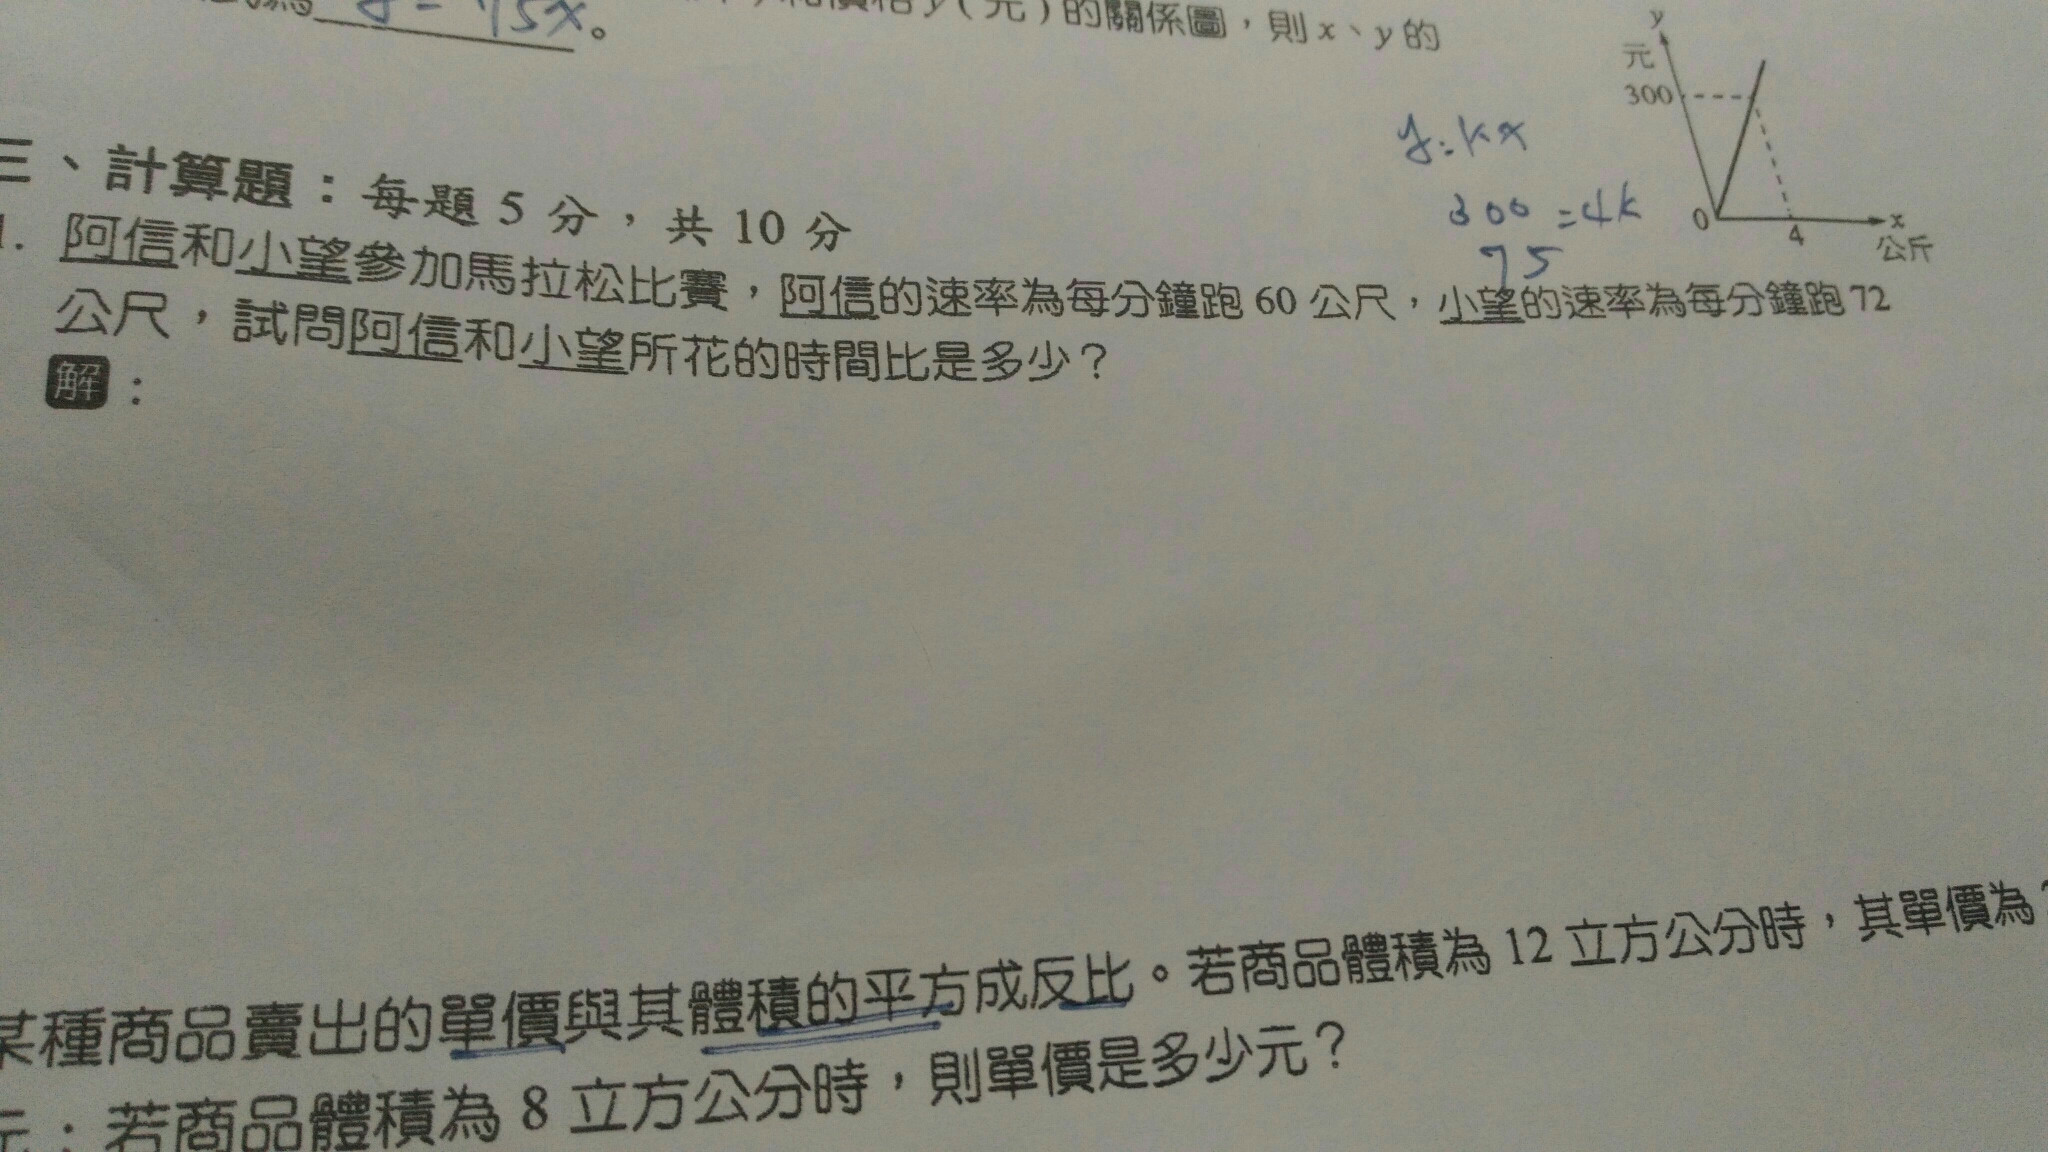 為 y = 75x。
價格 y(元)的關係圖,則 x、y 的
y
元
300
0
4
x
公斤
y=kx
300=4k
75
三、計算題:每題 5 分,共 10 分
1. 阿信和小望參加馬拉松比賽,阿信的速率為每分鐘跑 60 公尺,小望的速率為每分鐘跑 72
公尺,試問阿信和小望所花的時間比是多少?
解:
某種商品賣出的單價與其體積的平方成反比。若商品體積為 12 立方公分時,其單價為
元;若商品體積為 8 立方公分時,則單價是多少元?